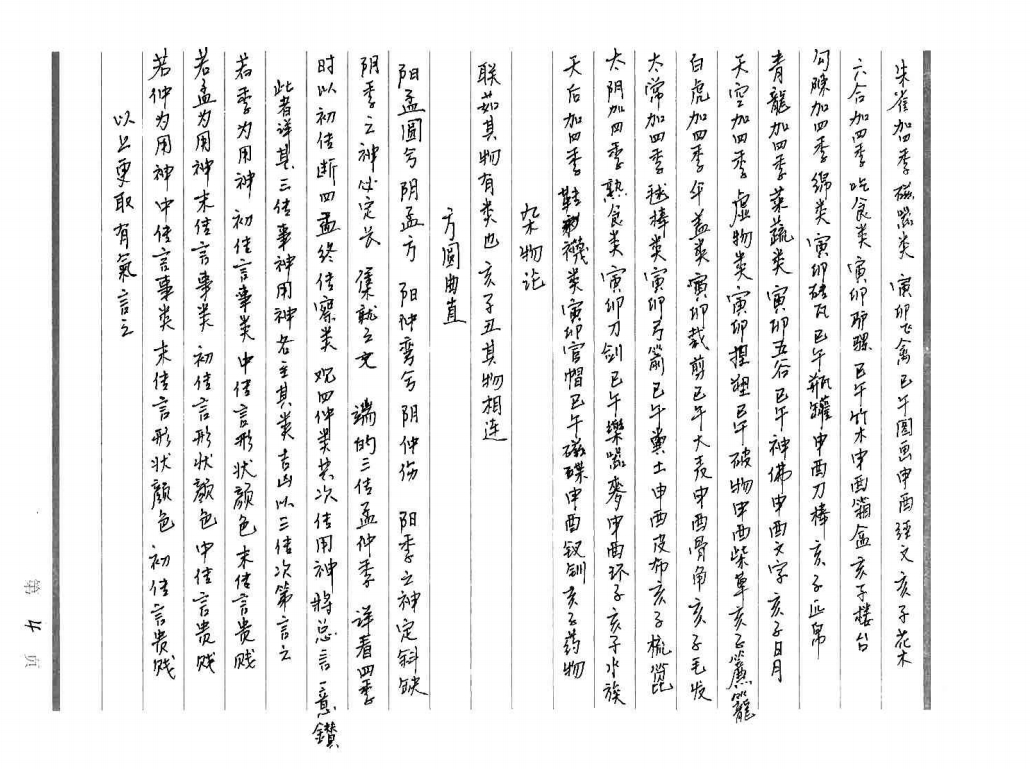 朱雀加四季磁器类 寅卯飞禽巳午图画申酉经文亥子花木
六合加四季吃食类 寅卯驴骡巳午竹木申酉箱盒亥子楼台
勾陳加四季綿类 寅卯砖瓦巳午瓶罐申酉刀棒亥子疋帛
青龍加四季菜蔬类 寅卯五谷巳午神佛申酉文字亥子日月
天空加四季虚物类寅卯捏塑巳午破物申酉柴草亥子簾籠
白虎加四季伞盖类寅卯裁剪巳午大麦申酉骨角亥子毛发
太常加四季毬棒类寅卯弓箭巳午粪土申酉皮布亥子梳篦
太阴加四季熟食类寅卯刀剑巳午樂器麥申酉环子亥子水族
天后加四季鞋襪类寅卯官帽巳午磁碟申酉钗钏亥子药物
杂物论
联茹其物有类也亥子丑其物相连
方圆曲直
阳孟圆兮阴孟方 阳仲弯兮阴仲伤 阳季之神定斜缺
阴季之神必定长 集就之文 端的三传孟仲季 详看四季
时以初传断四孟终传察类 观四仲类其次传用神將总言一意鑚
此者详其三传事神用神各主其类吉凶以三传次第言之
若季为用神 初传言事类 中传言形状颜色末传言贵贱
若孟为用神末传言事类 初传言形状颜色中传言贵贱
若仲为用神中传言事类 末传言形状颜色 初传言贵贱
以上更取有氣言之
第 4 页